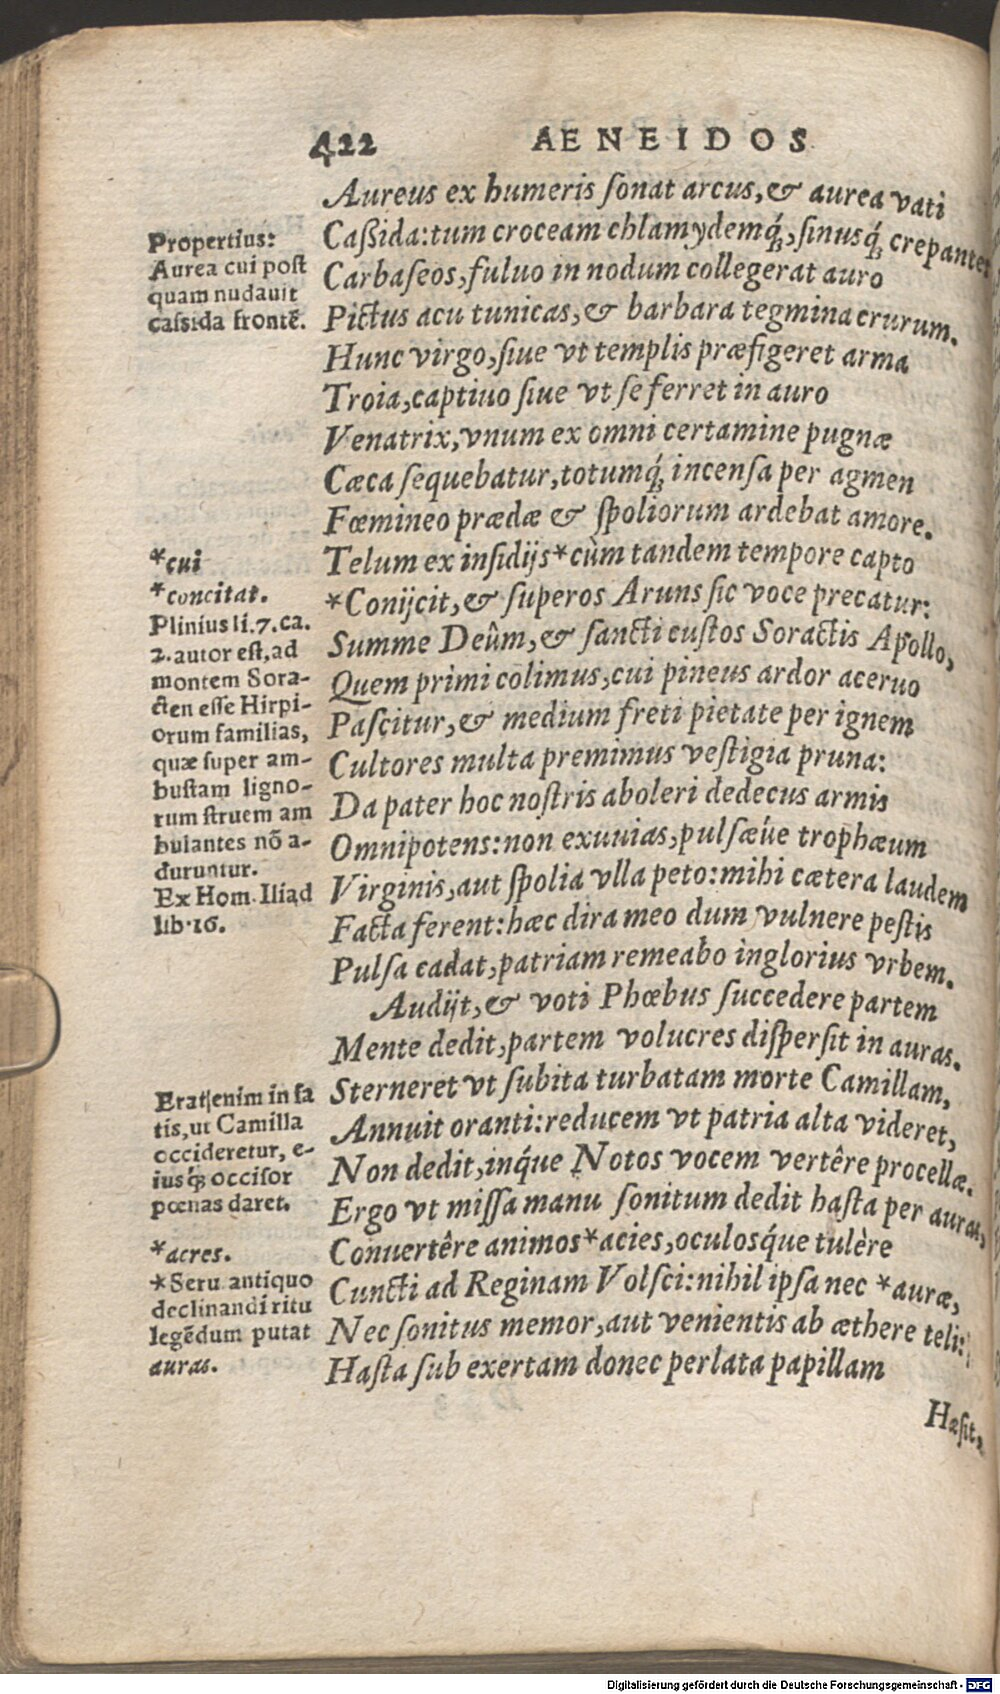 422 AENEIDOS
Aureus ex humeris ſonat arcus,& aurea vati
Caßida:tum croceam chlamydemq́;,ſinusq́; crepantes
Carbaſeos,fuluo in nodum collegerat auro
Pictus acu tunicas,& barbara tegmina crurum.
Hunc virgo,ſiue vt templis præfigeret arma
Troia,captiuo ſiue vt ſe ferret in auro
Venatrix,vnum ex omni certamine pugnæ
Cæca ſequebatur,totumq́; incenſa per agmen
Fœmineo prædæ & ſpoliorum ardebat amore.
Telum ex inſidijs*cùm tandem tempore capto
*Conijcit,& ſuperos Aruns ſic voce precatur:
Summe Deûm,& ſancti cuſtos Soractis Apollo,
Quem primi colimus,cui pineus ardor aceruo
Paſcitur,& medium freti pietate per ignem
Cultores multa premimus veſtigia pruna:
Da pater hoc noſtris aboleri dedecus armis
Omnipotens:non exuuias,pulſæúe trophæum
Virginis,aut ſpolia vlla peto:mihi cætera laudem
Facta ferent:hæc dira meo dum vulnere peſtis
Pulſa cadat,patriam remeabo inglorius vrbem.
Audijt,& voti Phœbus ſuccedere partem
Mente dedit,partem volucres diſperſit in auras.
Sterneret vt ſubita turbatam morte Camillam,
Annuit oranti:reducem vt patria alta videret,
Non dedit,inq́ue Notos vocem vertêre procellæ.
Ergo vt miſſa manu ſonitum dedit haſta per auras,
Conuertêre animos*acies,oculosq́ue tulère
Cuncti ad Reginam Volſci:nihil ipſa nec *auræ,
Nec ſonitus memor,aut venientis ab æthere teli:
Haſta ſub exertam donec perlata papillam
Hæſit,
Propertius:
Aurea cui poſt
quam nudauit
caſsida frontẽ.
*cui
*concitat.
Plinius li.7.ca.
2.autor eſt,ad
montem Sora-
cten eſſe Hirpi-
orum familias,
quæ ſuper am-
buſtam ligno-
rum ſtruem am
bulantes nõ a-
duruntur.
Ex Hom.Iliad
lib.16.
Erat enim in fa
tis,ut Camilla
occideretur, e-
iusq́; occiſor
pœnas daret.
*acres.
*Seru. antiquo
declinandi ritu
legẽdum putat
auras.
Digitalisierung gefördert durch die Deutsche Forschungsgemeinschaft - DFG